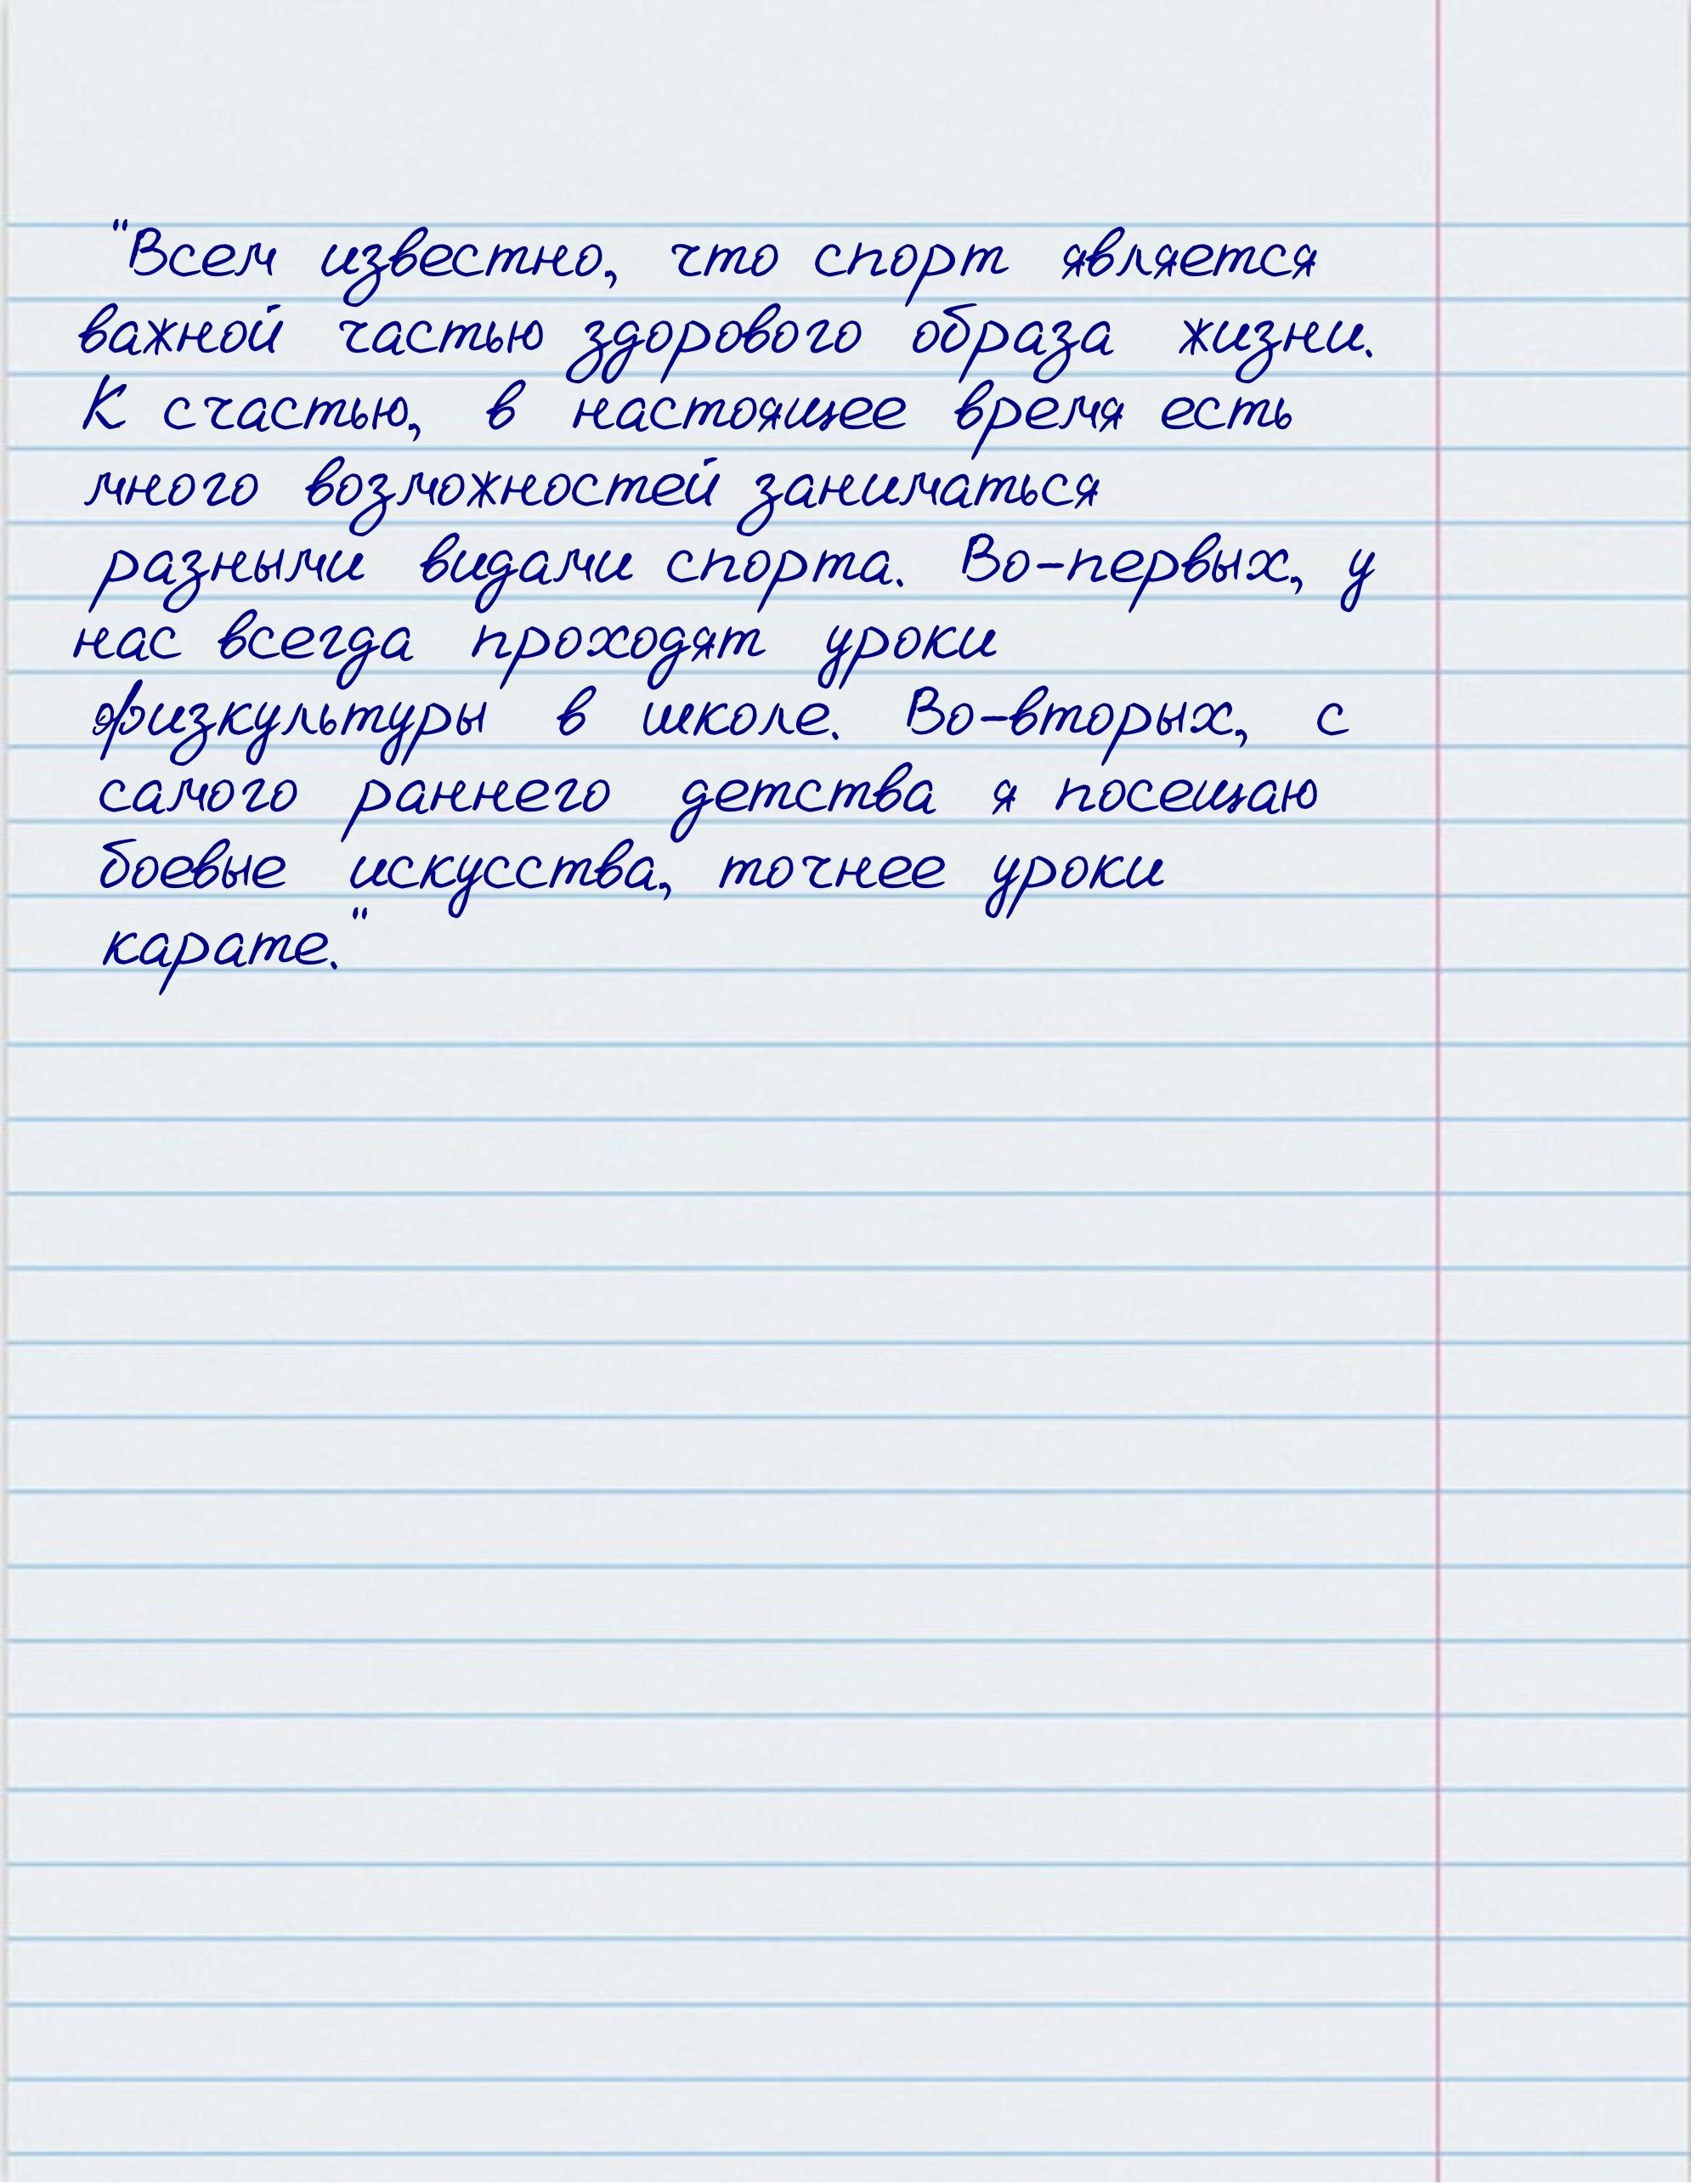 "Всем известно, что спорт является
важной частью здорового образа жизни.
К счастью, в настоящее время есть
много возможностей заниматься
разными видами спорта. Во-первых, у
нас всегда проходят уроки
физкультуры в школе. Во-вторых, с
самого раннего детства я посещаю
боевые искусства, точнее уроки
карате."